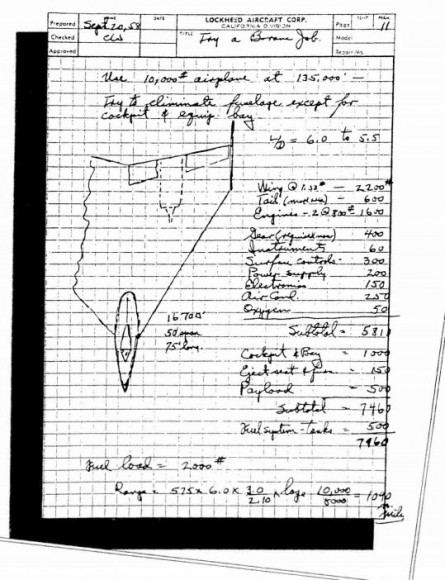 Prepared
NAME
Sept 20, 58
DATE
LOCKHEED AIRCRAFT CORP.
CALIFORNIA DIVISION
Page
TEMP.
PERM.
11
Checked
CLJ
TITLE
Try a Boron Job.
Model
Approved
Report No.
Use 10,000# airplane at 135,000' —
Try to eliminate fuselage except for
cockpit & equip bay
L/D = 6.0 to 5.5
Wing @ 1.32# — 2200#
Tail - 600
Engines - 2 @ 800# 1600
Gear 400
Instruments 60
Surface controls - 300
Power supply 200
Electronics 150
Air Cond. 250
Oxygen 50
1670□'
50 span
75' long.
Subtotal = 5810
Cockpit & Bay = 1000
Eject seat & - 150
Payload - 500
Subtotal - 7460
Fuel system - tanks 500
7960
Fuel load = 2000#
Range = 575 x 6.0 x 3.0/2.10 x loge 10,000/8000 = 1090
n. miles